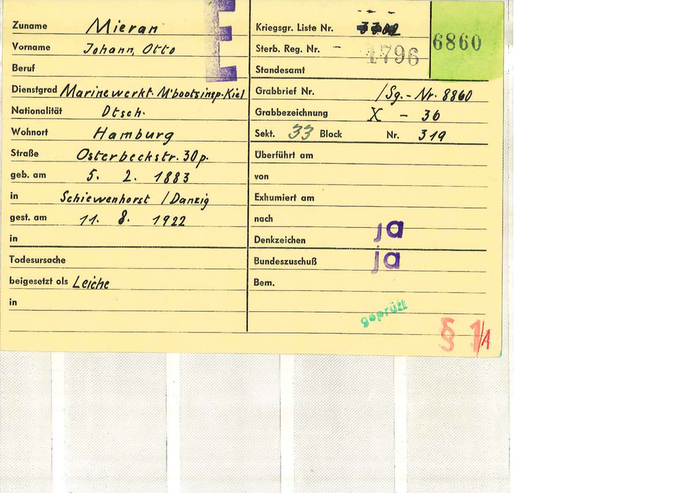 E
Zuname Mieran
Vorname Johann, Otto
Beruf
Dienstgrad Marinewerkt. M'bootsinsp. Kiel
Nationalität Dtsch.
Wohnort Hamburg
Straße Osterbeckstr. 30 p.
geb. am 5. 2. 1883
in Schiewenhorst / Danzig
gest. am 11. 8. 1922
in
Todesursache
beigesetzt als Leiche
in
Kriegsgr. Liste Nr.
Sterb. Reg. Nr. - 1796
6860
Standesamt
Grabbrief Nr. /Sg.-Nr. 8860
Grabbezeichnung X - 36
Sekt. 33 Block Nr. 319
Überführt am
von
Exhumiert am
nach
Denkzeichen ja
Bundeszuschuß ja
Bem.
geprüft
§ 1/A